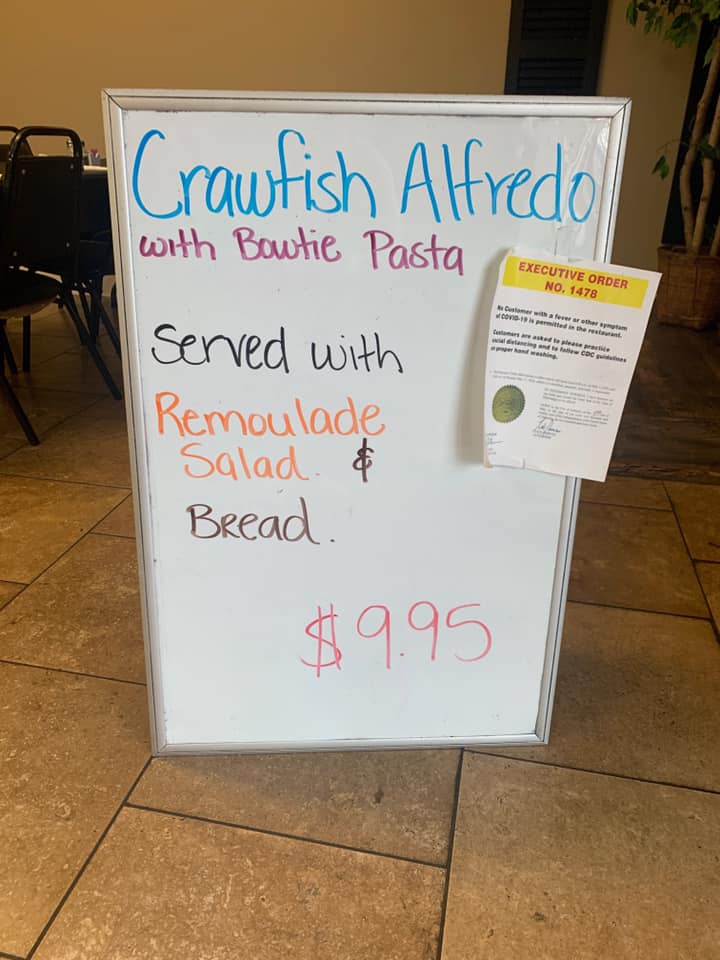 Crawfish Alfredo
with Bowtie Pasta
Served with
Remoulade
Salad. &
Bread.
$9.95
EXECUTIVE ORDER
NO. 1478
No Customer with a fever or other symptom
of COVID-19 is permitted in the restaurant.
Customers are asked to please practice
social distancing and to follow CDC guidelines
on proper hand washing.